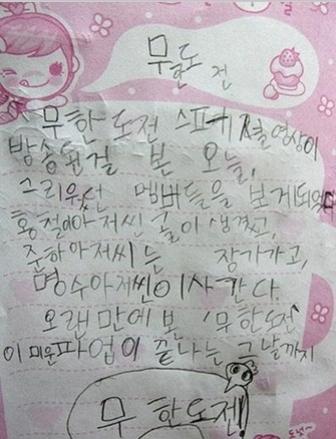 무한도전
무한도전 스피커촬영상이
방송된걸 본 오늘,
그리웠던 멤버들을 보게되었다
홍철이아저씬 굴이 생겼고,
준하아저씨는 장가가고,
명수아저씬이사간다.
오랜만에 본 '무한도전'
이미운파업이 끝나는 그날까지
무한도전!
도넛~